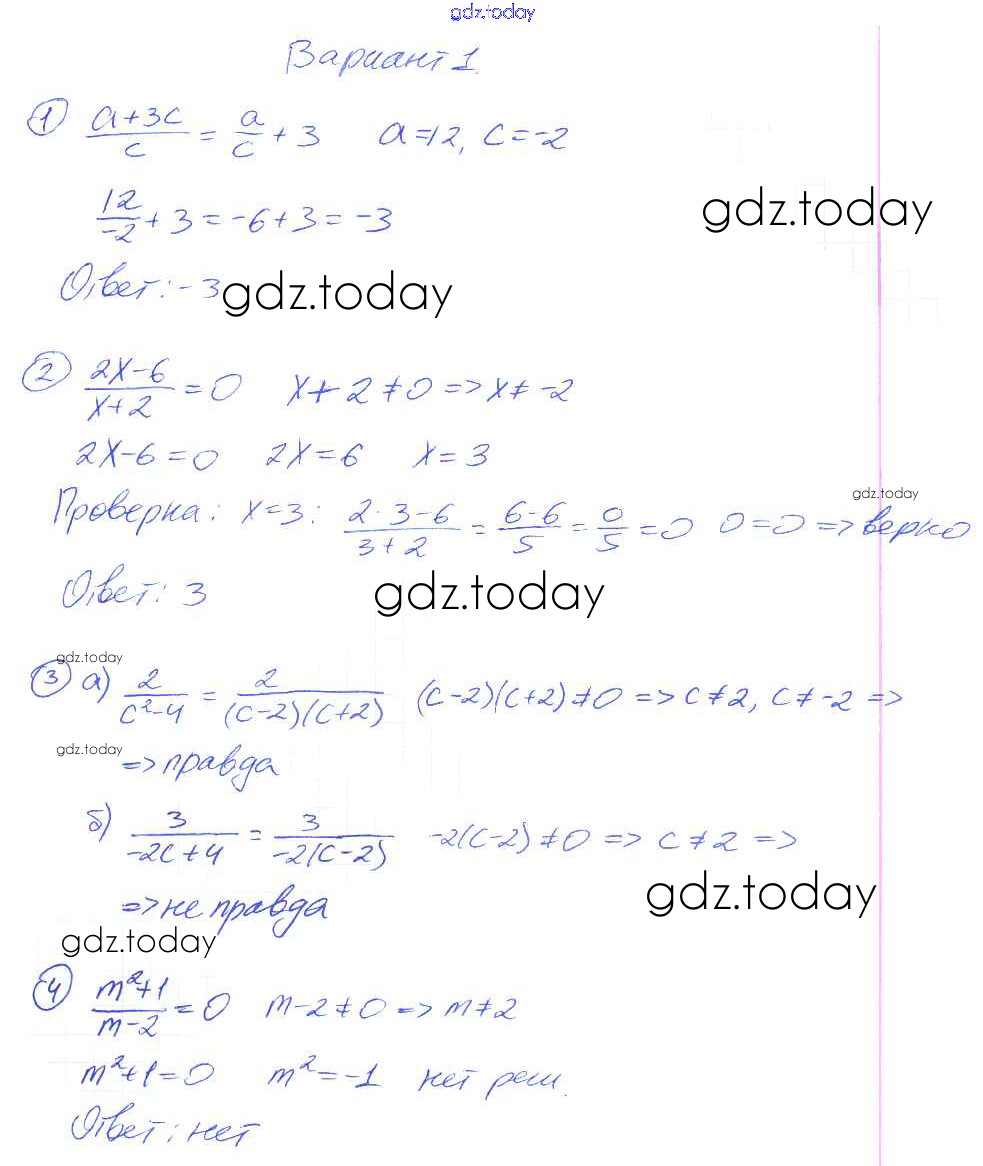 gdz.today
Вариант 1.
① (a+3c)/c = a/c + 3   a=12, c=-2
12/-2 + 3 = -6+3 = -3
gdz.today
Ответ: -3 gdz.today
② (2x-6)/(x+2) = 0   x+2≠0 => x≠-2
2x-6=0   2x=6   x=3
gdz.today
Проверка: x=3: (2·3-6)/(3+2) = (6-6)/5 = 0/5 = 0   0=0 => верно
Ответ: 3 gdz.today
gdz.today
③ а) 2/(c²-4) = 2/((c-2)(c+2))   (c-2)(c+2)≠0 => c≠2, c≠-2 =>
gdz.today
=> правда
б) 3/(-2c+4) = 3/(-2(c-2))   -2(c-2)≠0 => c≠2 =>
=> не правда gdz.today
gdz.today
④ (m²+1)/(m-2) = 0   m-2≠0 => m≠2
m²+1=0   m²=-1   нет реш.
Ответ: нет